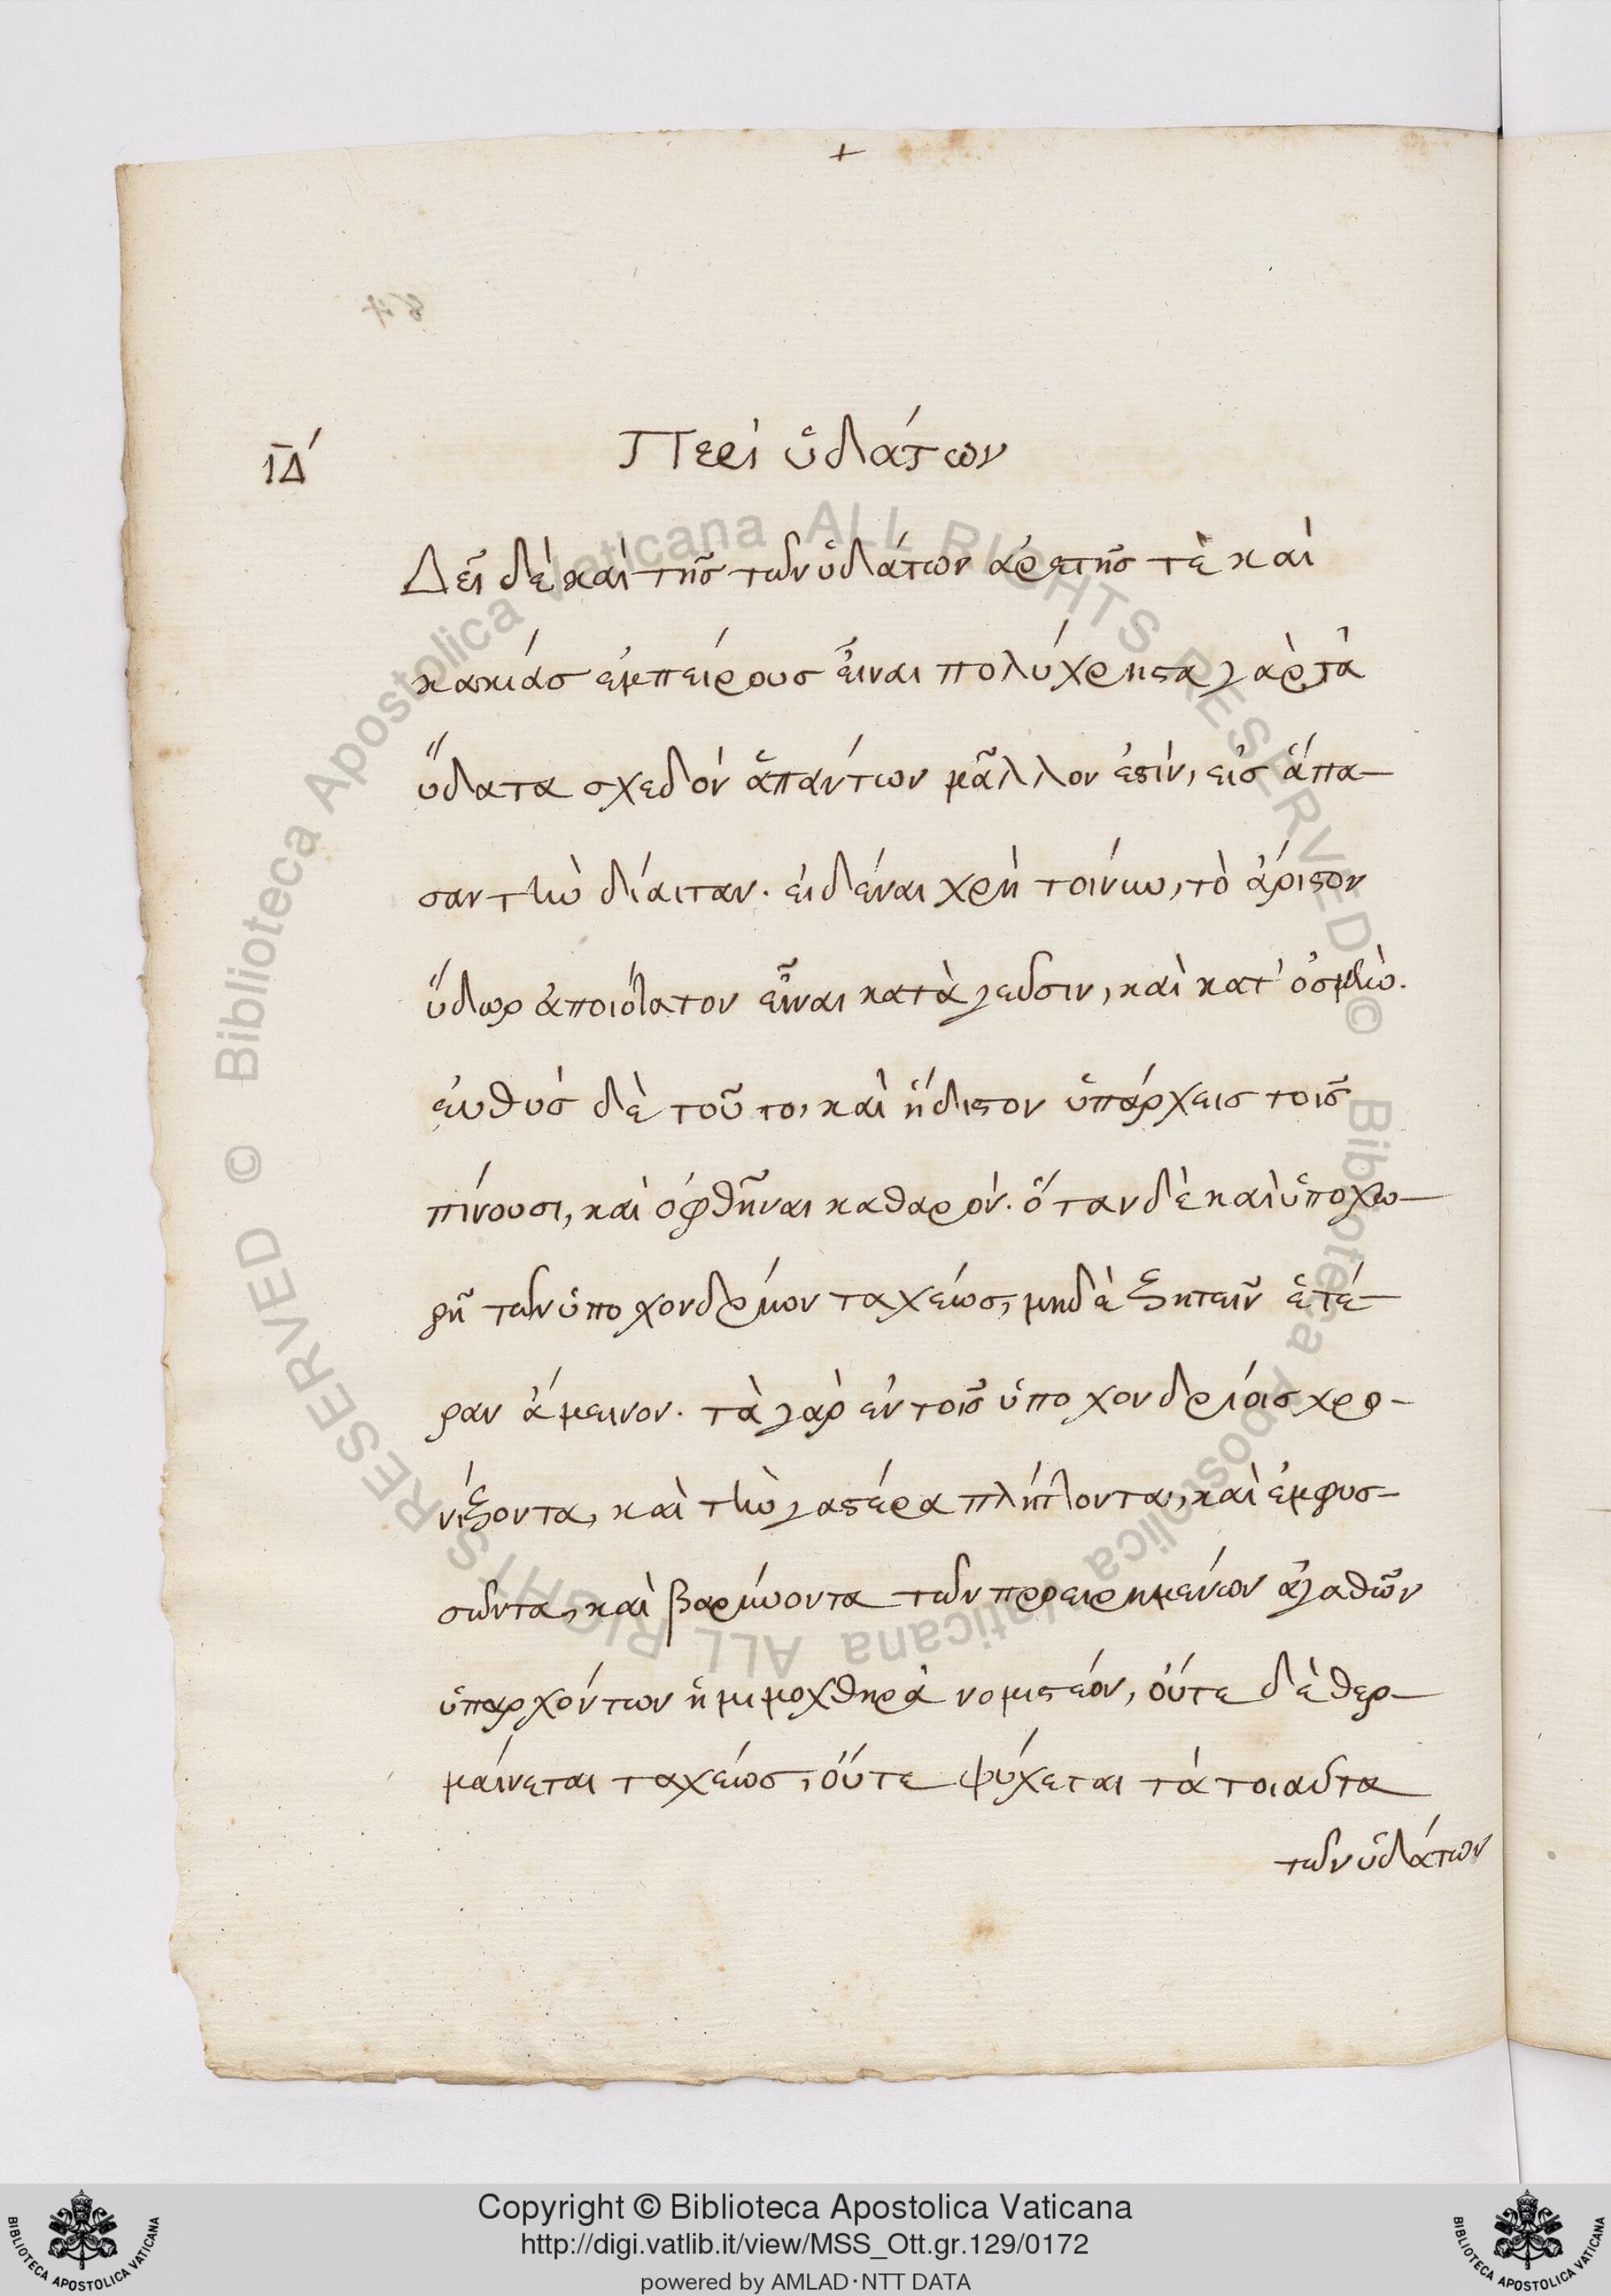 +
ΙΔ́ Περὶ ὑδάτων
Δεῖ δὲ καὶ τῆς τῶν ὑδάτων ἀρετῆς τὲ καὶ
κακιάσ ἐμπείρους εἶναι πολύχρηστα γὰρ τὰ
ὕδατα σχεδὸν ἁπάντων μᾶλλον ἐστίν, εἰσ ἅπα-
σαν τὴν δίαιταν. εἰδέναι χρὴ τοίνυν, τὸ ἄριστον
ὕδωρ ἀποιότατον εἶναι κατὰ γεῦσιν, καὶ κατ' ὀσμὴν.
εὐθύσ δὲ τοῦτο, καὶ ἥδιστον ὑπάρχεισ τοῖσ
πίνουσι, καὶ ὀφθῆναι καθαρόν. ὅταν δὲ καὶ ὑποχω-
ρῆ τῶν ὑποχονδρίων ταχέωσ, μηδὲ ζητεῖν ἑτέ-
ραν ἄμεινον. τὰ γὰρ ἐν τοῖσ ὑποχονδρίοισ χρο-
νίζοντα, καὶ τὴν γαστέρα πλήττοντα, καὶ ἐμφυσ-
σῶντα, καὶ βαρύνοντα τῶν προειρημένων ἀγαθῶν
ὑπαρχόντων ἡμιμοχθηρὰ νομιστέον, οὔτε δὲ θερ-
μαίνεται ταχέωσ, οὔτε ψύχεται τὰ τοιαῦτα
τῶν ὑδάτων
© Biblioteca Apostolica Vaticana ALL RIGHTS RESERVED © Biblioteca Apostolica Vaticana ALL RIGHTS RESERVED
Copyright © Biblioteca Apostolica Vaticana
http://digi.vatlib.it/view/MSS_Ott.gr.129/0172
powered by AMLAD·NTT DATA
BIBLIOTECA APOSTOLICA VATICANA
BIBLIOTECA APOSTOLICA VATICANA